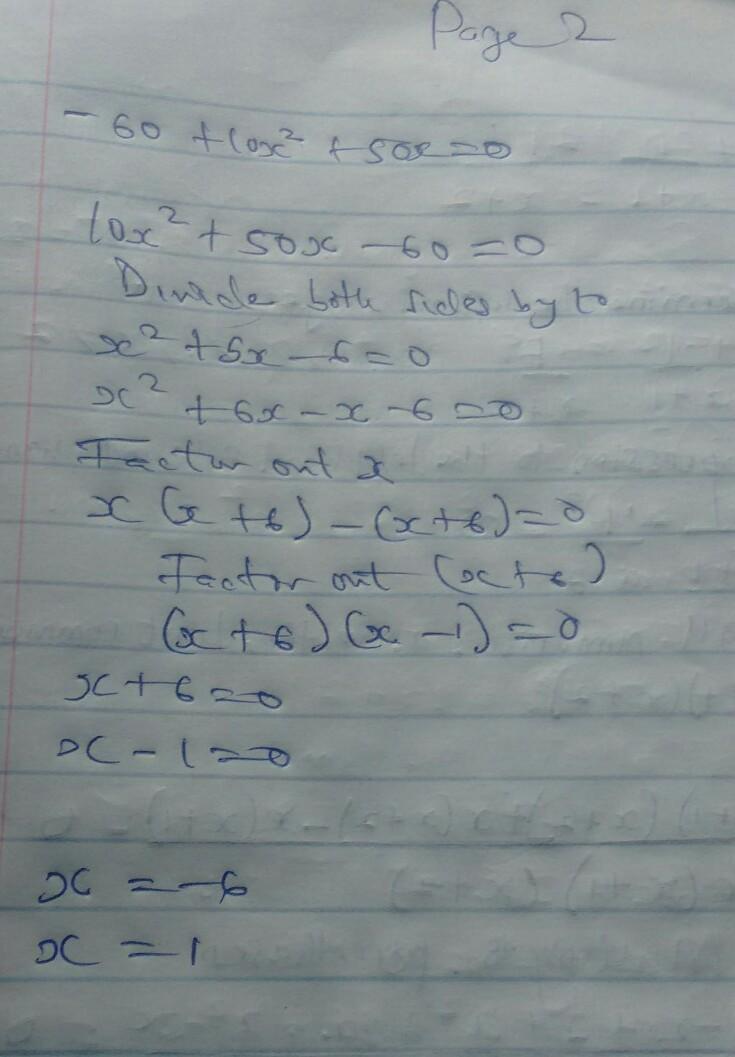 Page 2
- 60 + 10x² + 50x = 0
10x² + 50x - 60 = 0
Divide both sides by 10
x² + 5x - 6 = 0
x² + 6x - x - 6 = 0
Factor out x
x (x + 6) - (x + 6) = 0
Factor out (x + 6)
(x + 6) (x - 1) = 0
x + 6 = 0
x - 1 = 0
x = -6
x = 1